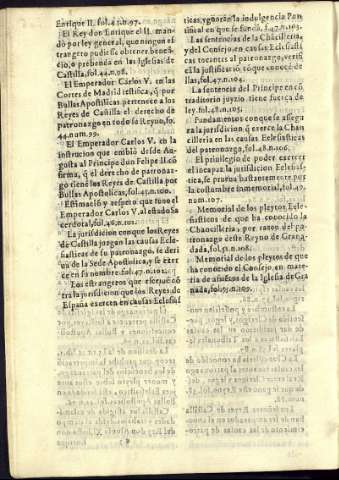 Enrique II. fol.41.n.97.
El Rey don Enrique el II. man
dò por ley general, que ningun es
trangero pudiesse obtener benefi-
cio, o prebenda en las Iglesias de
Castilla, fol.44.n.98.
El Emperador Carlos V. en las
Cortes de Madrid testifica, q̃ por
Bullas Apostolicas pertenece a los
Reyes de Castilla el derecho de
patronazgo en todo su Reyno, fo.
44.num.99.
El Emperador Carlos V. en la
instrucion que embiò desde Au-
gusta al Principe don Felipe II. cõ
firma, q̃ el derecho de patronaz-
go tiene los Reyes de Castilla por
Bullas Apostolicas, fol.45.n.100.
Estimaciõ y respeto que tuuo el
Emperador Carlos V. al estado Sa
cerdotal, fo.46.n.101.
La jurisdicion con que los Reyes
de Castilla juzgan las causas Ecle-
siasticas de su patronazgo, se deri
ua de la Sede Apostolica, y se exer
ce en su nombre. fol.47.n.102.
Los estrangeros que escriuẽ cõ
tra la jurisdicion que los Reyes de
España exercen en causas Eclesias
ticas, ygnorãn la indulgencia Pon
tifical en que se fundã, fo.47.n.103.
Las sentencias de la Chãcilleria,
y del Consejo, en causas Eclesiasti
cas tocantes al patronazgo, verifi
cã la justificaciõ, cõ que conocẽ de
llas, fol.47.n.104.
La sentencia del Principe en cõ
traditorio juyzio, tiene fuerça de
ley. fol.48.n.105.
Fundamentos con que se assegu
ra la jurisdicion, q̃ exerce la Chan
cilleria en las causas Eclesiasticas
del patronazgo, fol.48.n.106.
El priuilegio de poder exercer
el incapaz la jurisdicion Eclesias-
tica, se prueua bastantemente por
la costumbre inmemorial, fol.47.
num.107.
Memorial de los pleytos Ecle-
siasticos de que ha conocido la
Chancilleria, por razon del pa-
tronazgo deste Reyno de Grana-
dada, fol.51.n.108.
Memorial de los pleytos de que
ha conocido el Consejo, en mate-
ria de diezmos de la Iglesia de Gra
nada, fol.95.n.109.